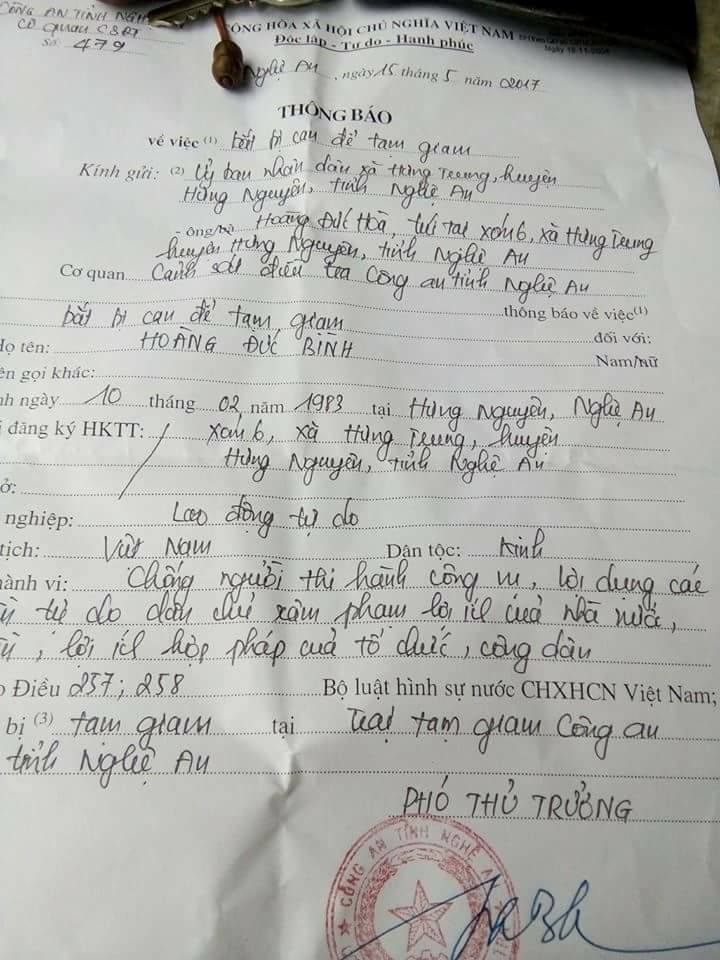 CÔNG AN TỈNH NGH
CƠ QUAN CSĐT
Số 479
CỘNG HÒA XÃ HỘI CHỦ NGHĨA VIỆT NAM
Độc lập - Tự do - Hạnh phúc
Nghệ An, ngày 15 tháng 5 năm 2017
THÔNG BÁO
về việc (1) bắt bị can để tạm giam
Kính gửi: (2) Uỷ ban nhân dân xã Hưng Trung, huyện
Hưng Nguyên, tỉnh Nghệ An
- ông/bà Hoàng Đức Hoà, trú tại xóm 6, xã Hưng Trung
huyện Hưng Nguyên, tỉnh Nghệ An
Cơ quan Cảnh sát điều tra Công an tỉnh Nghệ An
thông báo về việc(1)
bắt bị can để tạm giam đối với:
Họ tên: HOÀNG ĐỨC BÌNH Nam/nữ
ên gọi khác:
nh ngày 10 tháng 02 năm 1983 tại Hưng Nguyên, Nghệ An
i đăng ký HKTT: xóm 6, xã Hưng Trung, huyện
Hưng Nguyên, tỉnh Nghệ An
ở:
nghiệp: Lao động tự do
tịch: Việt Nam Dân tộc: Kinh
hành vi: Chống người thi hành công vụ, lợi dụng các
tự do dân chủ xâm phạm lợi ích của nhà nước,
lợi ích hợp pháp của tổ chức, công dân
o Điều 257; 258 Bộ luật hình sự nước CHXHCN Việt Nam;
bị (3) tạm giam tại Trại tạm giam Công an
tỉnh Nghệ An
PHÓ THỦ TRƯỞNG
CÔNG AN TỈNH NGHỆ A